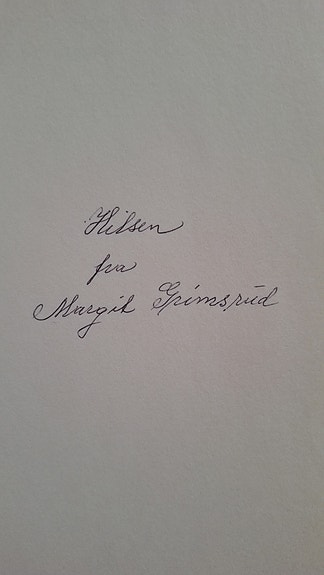 Hilsen
fra
Margit Grimsrud